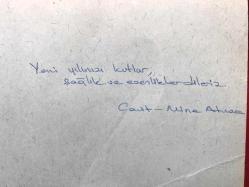 Yeni yılınızı kutlar,
sağlık ve esenlikler dileriz.
Cavit - Mine